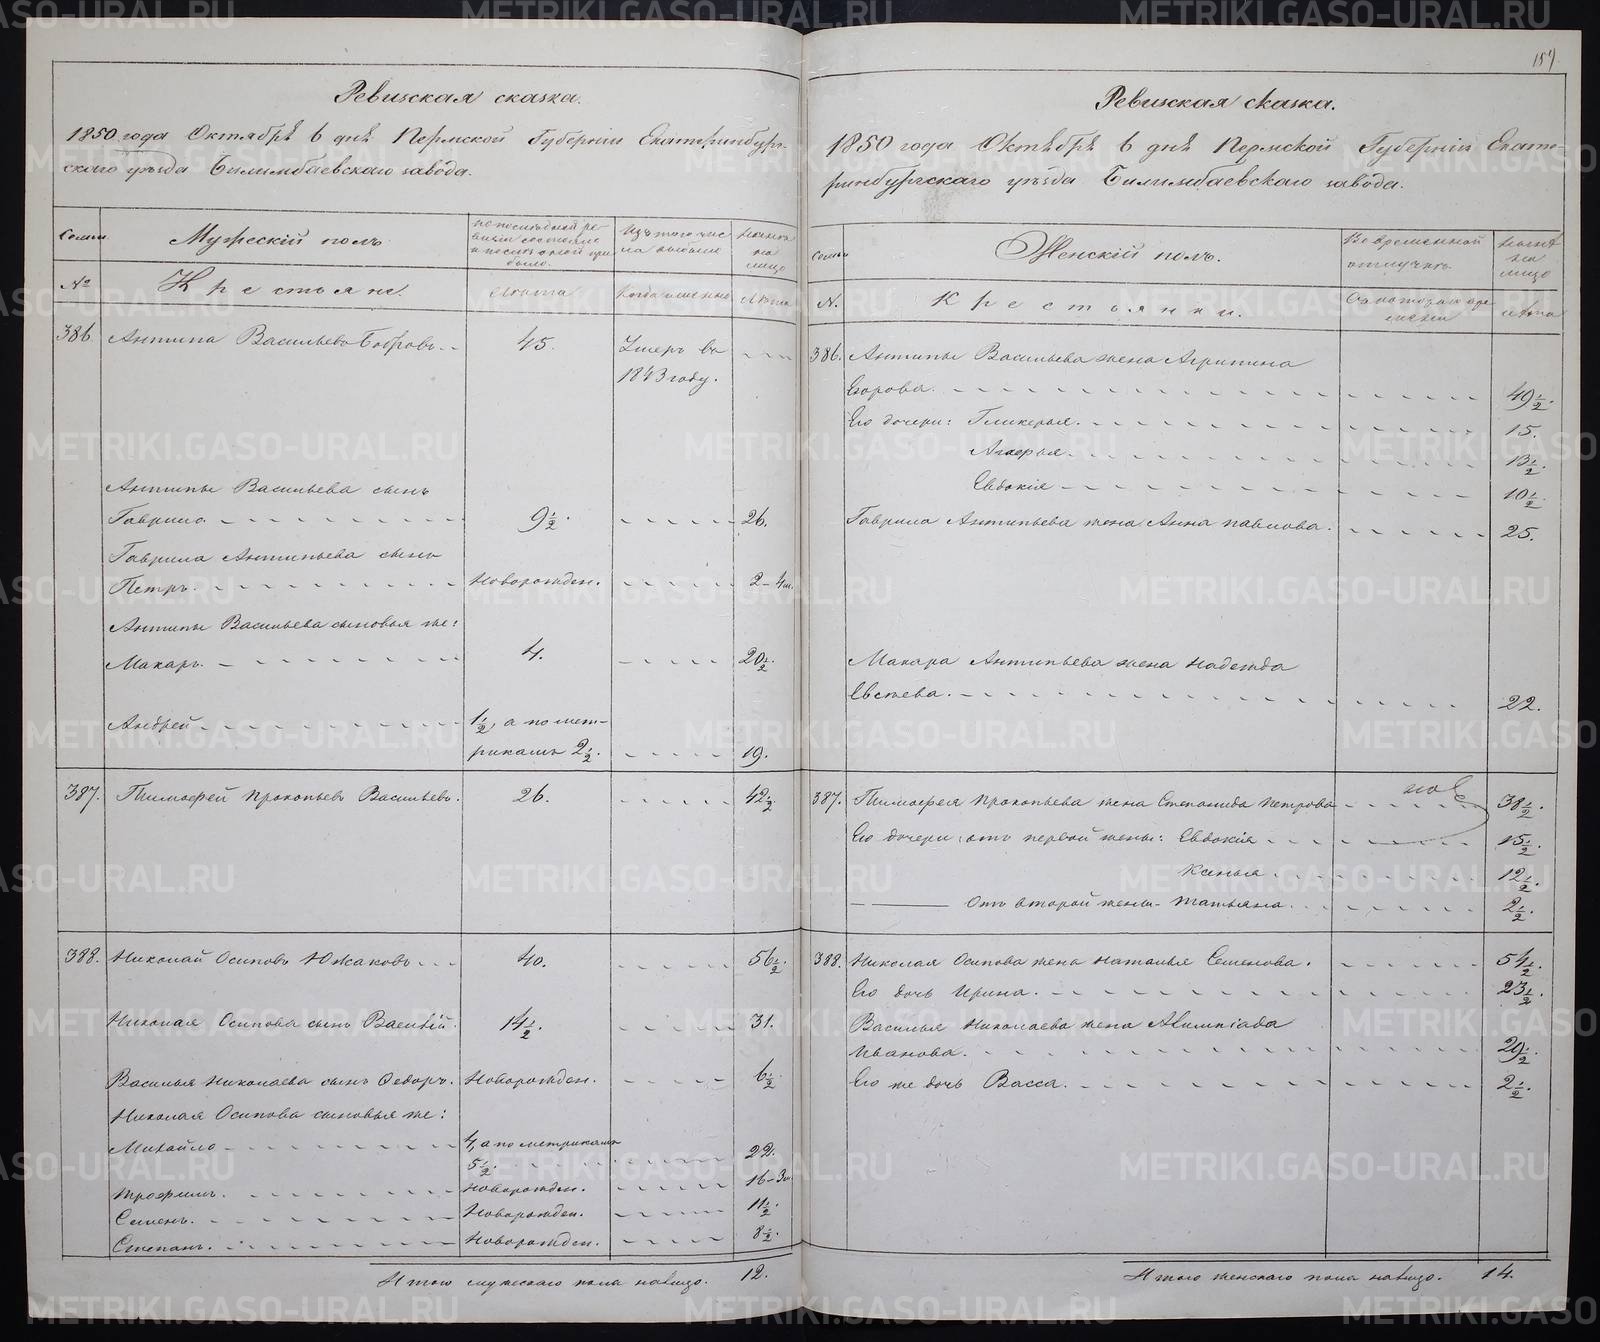 187
Ревизская сказка.
1850 года Октября 6 дня Пермской Губерніи Екатеринбург-
скаго уѣзда Билимбаевскаго завода.
Семьи
Мужескій полъ
по послѣдней ре-
визіи состояло
и послѣ оной при
было.
Изъ того чис
ла выбыло
Нынѣ
на
лицо
№
Крестьяне.
Лѣта
Когда именно
Лѣта
386. Антипа Васильевъ Бобровъ. 45. Умеръ въ
1843 году.
Антипы Васильева сынъ
Гаврило. 9½. 26.
Гаврила Антипьева сынъ
Петръ. Новорожден. 2-4м.
Антипы Васильева сыновья же:
Макаръ. 4. 20½.
Андрей 1½, а по мет-
рикамъ 2½. 19.
387. Тимофей Прокопьевъ Васильевъ. 26. 42½
388. Николай Осиповъ Южаковъ 40. 56½.
Николая Осипова сынъ Василій. 14½. 31.
Василья Николаева сынъ Федоръ. Новорожден. 6½.
Николая Осипова сыновья же:
Михайло 4, а по метрикамъ
5½. 22.
Трофимъ. Новорожден. 16-3м
Семенъ. Новорожден. 11½.
Степанъ. Новорожден. 8½.
Итого мужескаго пола налицо. 12.
Ревизская сказка.
1850 года Октября 6 дня Пермской Губерніи Екате-
ринбургскаго уѣзда Билимбаевскаго завода.
Семьи
Женскій полъ.
Во временной
отлучкѣ
Нынѣ
на
лицо
N.
Крестьянки.
Съ котораго вре-
мени
Лѣта
386. Антипы Васильева жена Агрипина
Егорова. 49½.
Его дочери: Гликерья. 15.
Агафья. 13½.
Евдокія 10½.
Гаврила Антипьева жена Анна Павлова. 25.
Макара Антипьева жена Надежда
Евсѣева. 22.
387. Тимофея Прокопьева жена Степанида Петрова 38½.
Его дочери: отъ первой жены: Евдокія 15½.
Ксенья 12½.
Отъ второй жены - Татьяна. 2½.
388. Николая Осипова жена Наталья Семенова. 54½.
Его дочь Ирина. 23½.
Василья Николаева жена Алимпіада
Иванова. 29½.
Его же дочь Васса. 2½.
Итого женскаго пола налицо. 14.
METRIKI.GASO-URAL.RU